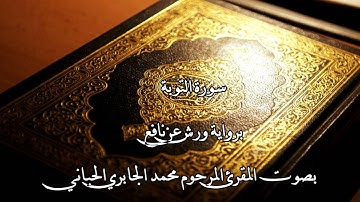 سورة التوبة
برواية ورش عن نافع
بصوت المقرئ المرحوم محمد الجابري الحياني